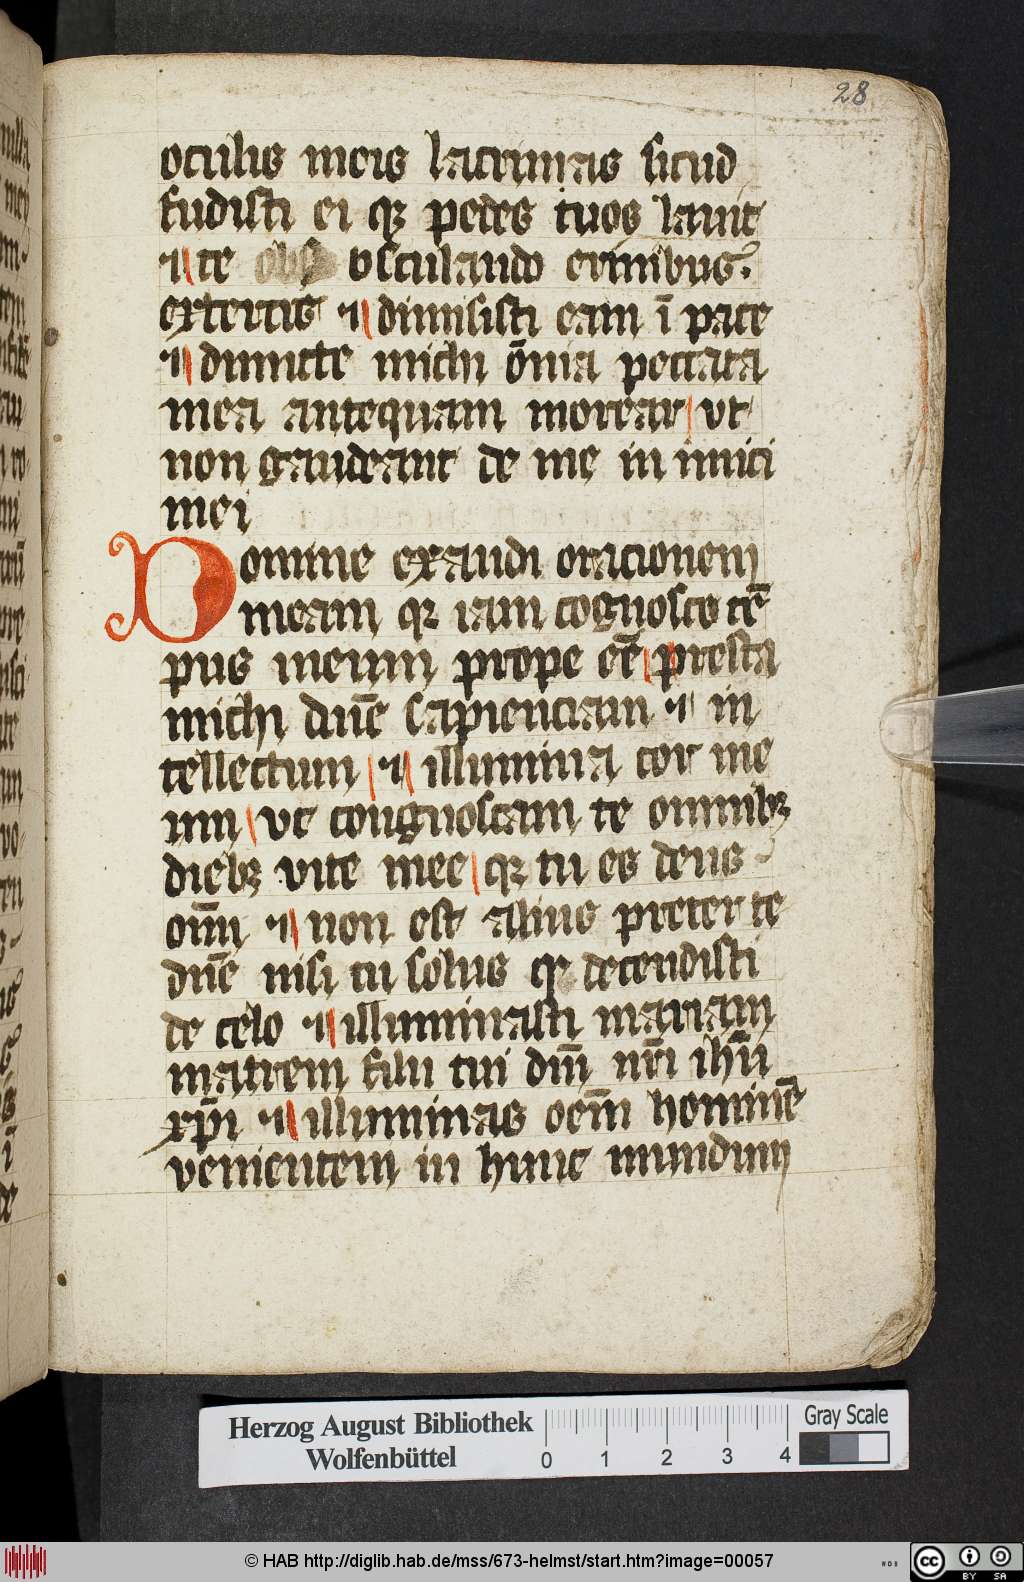 28
oculis meis lacrimas sicud
fudisti ei qꝛ pedes tuos lauit
⁊ te osculando crinibus
extertis ⁊ dimisisti eam ī pace
⁊ dimitte michi ōnia peccata
mea antequam morear vt
non gaudeant de me in imici
mei
Domine exaudi oracionem
meam qꝛ iam cognosco tē
pus meum prope eē presta
michi dn̄e sapienciam ⁊ in
tellectum ⁊ illumina cor me
um vt congnoscam te omnibꝫ
diebꝫ vite mee qꝛ tu es deus
om̄ ⁊ non est alius preter te
dn̄e nisi tu solus qꝛ decendisti
de celo ⁊ illuminasti mariam
matrem filii tui dn̄i nr̄i ihū
xp̄i ⁊ illuminas oem̄ hominē
venientem in hunc mundum
Herzog August Bibliothek
Wolfenbüttel
0 1 2 3 4
Gray Scale
© HAB http://diglib.hab.de/mss/673-helmst/start.htm?image=00057
cc BY SA